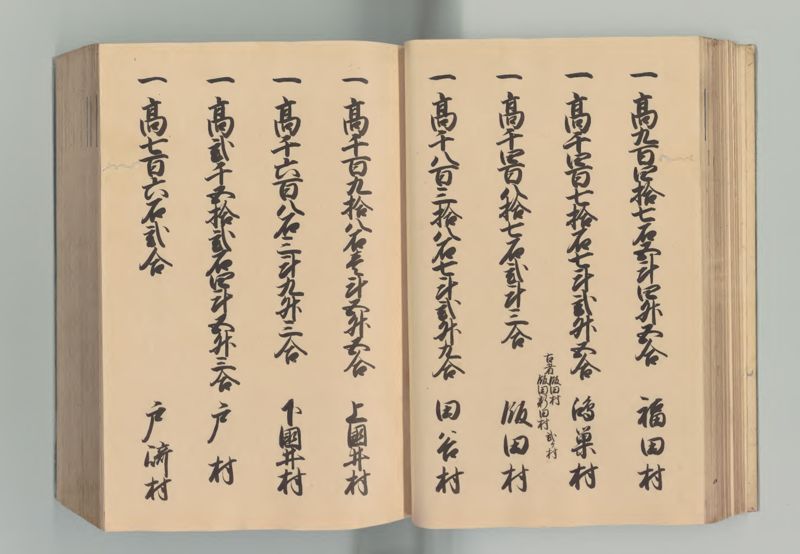 一 高九百四拾七石五斗四升五合 福田村
一 高千四百七拾石七斗弐升五合 鴻巣村
一 高千四百八拾七石弐斗三合 飯田村
古者 飯田村
飯田新田村 弐ヶ村
一 高千八百三拾八石七斗弐升九合 田谷村
一 高千百九拾八石壱斗五升五合 上國井村
一 高千六百八石三斗九升三合 下國井村
一 高弐千五拾弐石四斗五升三合 戸村
一 高七百六石弐合 戸崎村